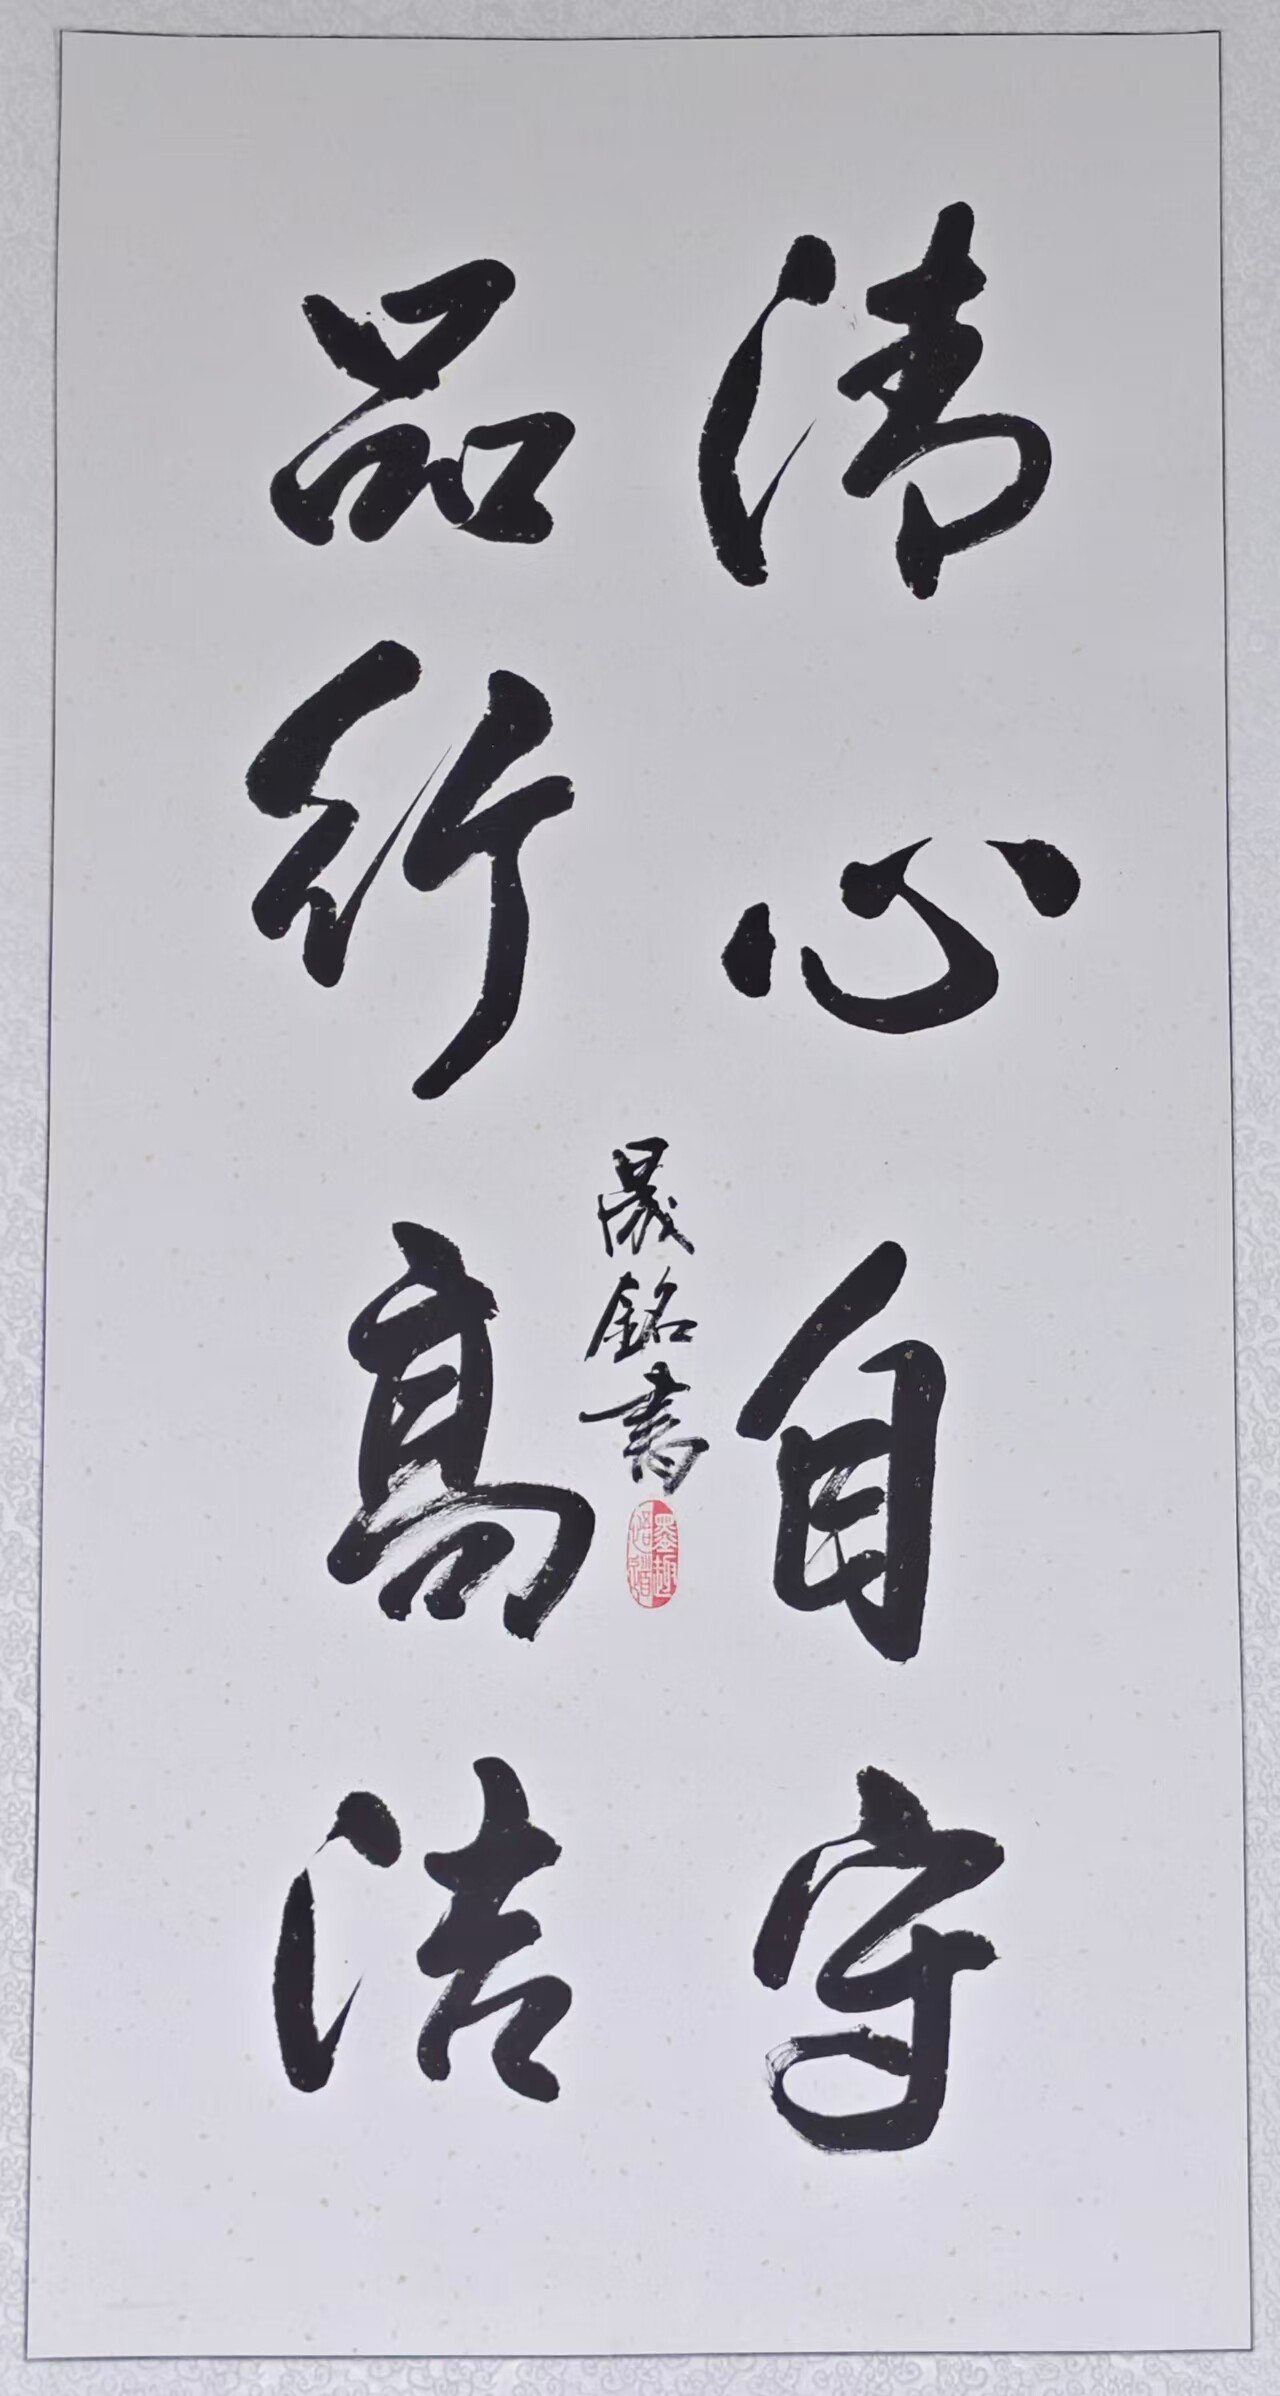 清心自守
品行高洁
晟銘書